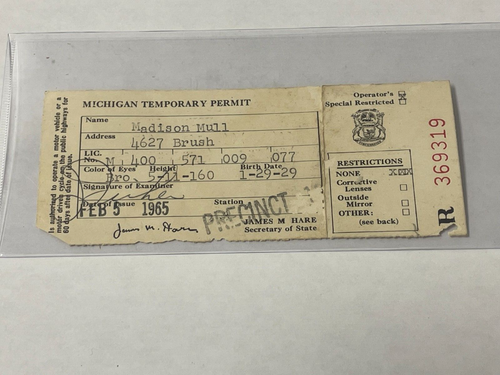 is authorized to operate a motor vehicle or a
motor driven cycle on the public highways for
60 days after date of issue.
MICHIGAN TEMPORARY PERMIT
Name
Madison Mull
Address
4627 Brush
LIC.
No. M 400 571 009 077
Color of Eyes Height Birth Date
Bro. 5-11-160 1-29-29
Signature of Examiner
Date of Issue Station
FEB 5 1965
PRECINCT
James M. Hare
JAMES M HARE
Secretary of State
Operator's
Special Restricted
RESTRICTIONS
NONE XXX
Corrective
Lenses
Outside
Mirror
OTHER:
(see back)
369319
AR